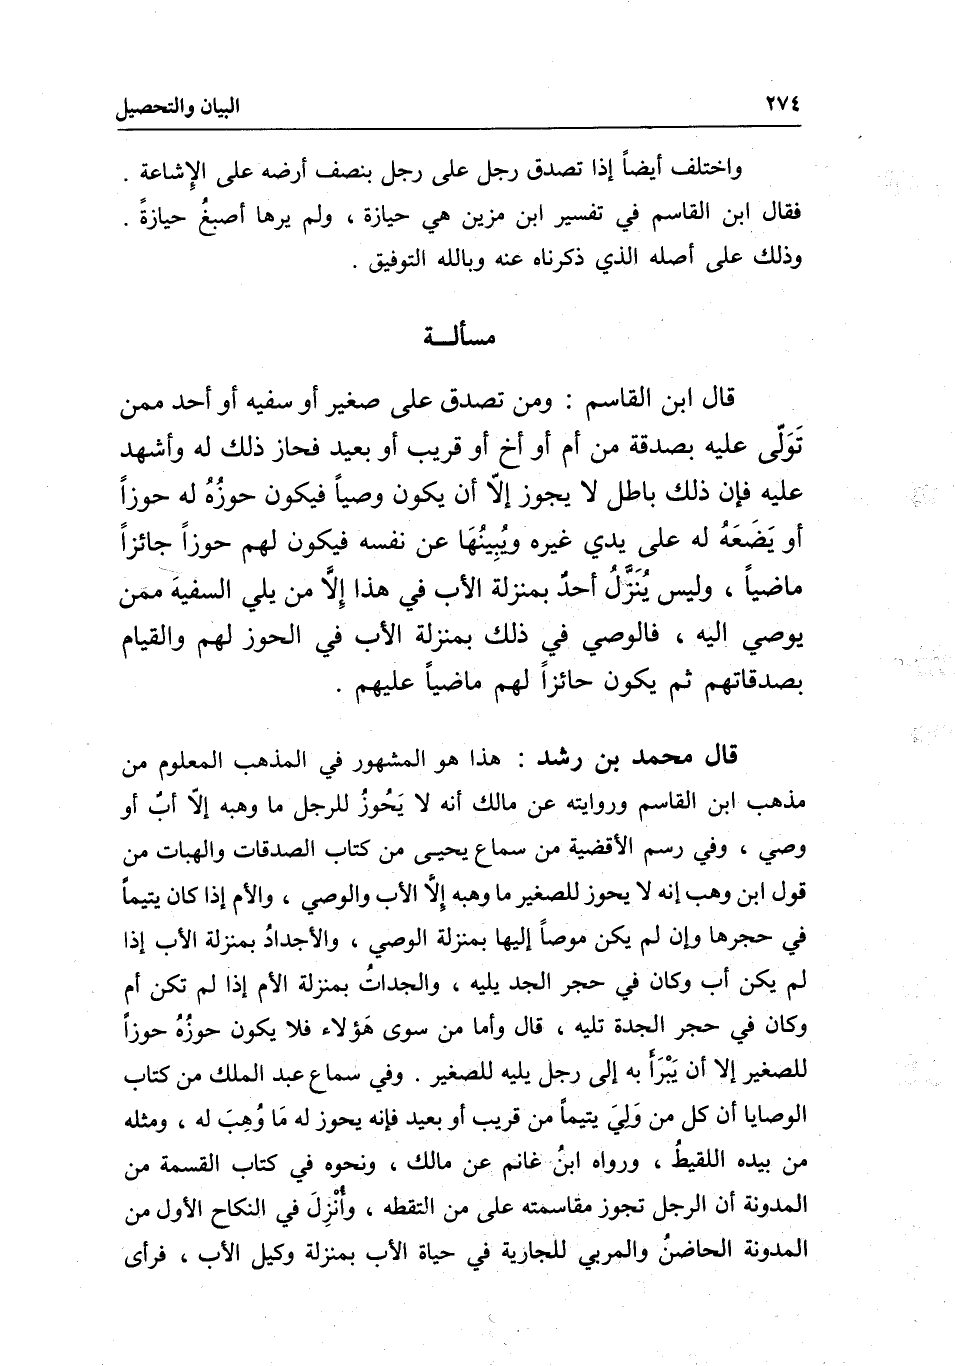 ٢٧٤ البيان والتحصيل
واختلف أيضاً إذا تصدق رجل على رجل بنصف أرضه على الإشاعة .
فقال ابن القاسم في تفسير ابن مزين هي حيازة ، ولم يرها أصبغُ حيازةً .
وذلك على أصله الذي ذكرناه عنه وبالله التوفيق .
مسألــة
قال ابن القاسم : ومن تصدق على صغير أو سفيه أو أحد ممن
تَوَلَّى عليه بصدقة من أم أو أخ أو قريب أو بعيد فحاز ذلك له وأشهد
عليه فإن ذلك باطل لا يجوز إلّا أن يكون وصياً فيكون حوزُهُ له حوزاً
أو يَضَعَهُ له على يدي غيره ويُبِينُهَا عن نفسه فيكون لهم حوزاً جائزاً
ماضياً ، وليس يُنَزَّلُ أحدٌ بمنزلة الأب في هذا إِلَّا من يلي السفيهَ ممن
يوصي اليه ، فالوصي في ذلك بمنزلة الأب في الحوز لهم والقيام
بصدقاتهم ثم يكون حائزاً لهم ماضياً عليهم .
قال محمد بن رشد : هذا هو المشهور في المذهب المعلوم من
مذهب ابن القاسم وروايته عن مالك أنه لا يَحُوزُ للرجل ما وهبه إلّا أبٌ أو
وصي ، وفي رسم الأقضية من سماع يحيى من كتاب الصدقات والهبات من
قول ابن وهب إنه لا يحوز للصغير ما وهبه إلَّا الأب والوصي ، والأم إذا كان يتيماً
في حجرها وإن لم يكن موصاً إليها بمنزلة الوصي ، والأجدادُ بمنزلة الأب إذا
لم يكن أب وكان في حجر الجد يليه ، والجداتُ بمنزلة الأم إذا لم تكن أم
وكان في حجر الجدة تليه ، قال وأما من سوى هَؤلاء فلا يكون حوزُهُ حوزاً
للصغير إلا أن يَبْرَأَ به إلى رجل يليه للصغير . وفي سماع عبد الملك من كتاب
الوصايا أن كل من وَلِيَ يتيماً من قريب أو بعيد فإنه يحوز له مَا وُهِبَ له ، ومثله
من بيده اللقيطُ ، ورواه ابنُ غانم عن مالك ، ونحوه في كتاب القسمة من
المدونة أن الرجل تجوز مقاسمته على من التقطه ، وأُنْزِلَ في النكاح الأول من
المدونة الحاضنُ والمربي للجارية في حياة الأب بمنزلة وكيل الأب ، فرأى